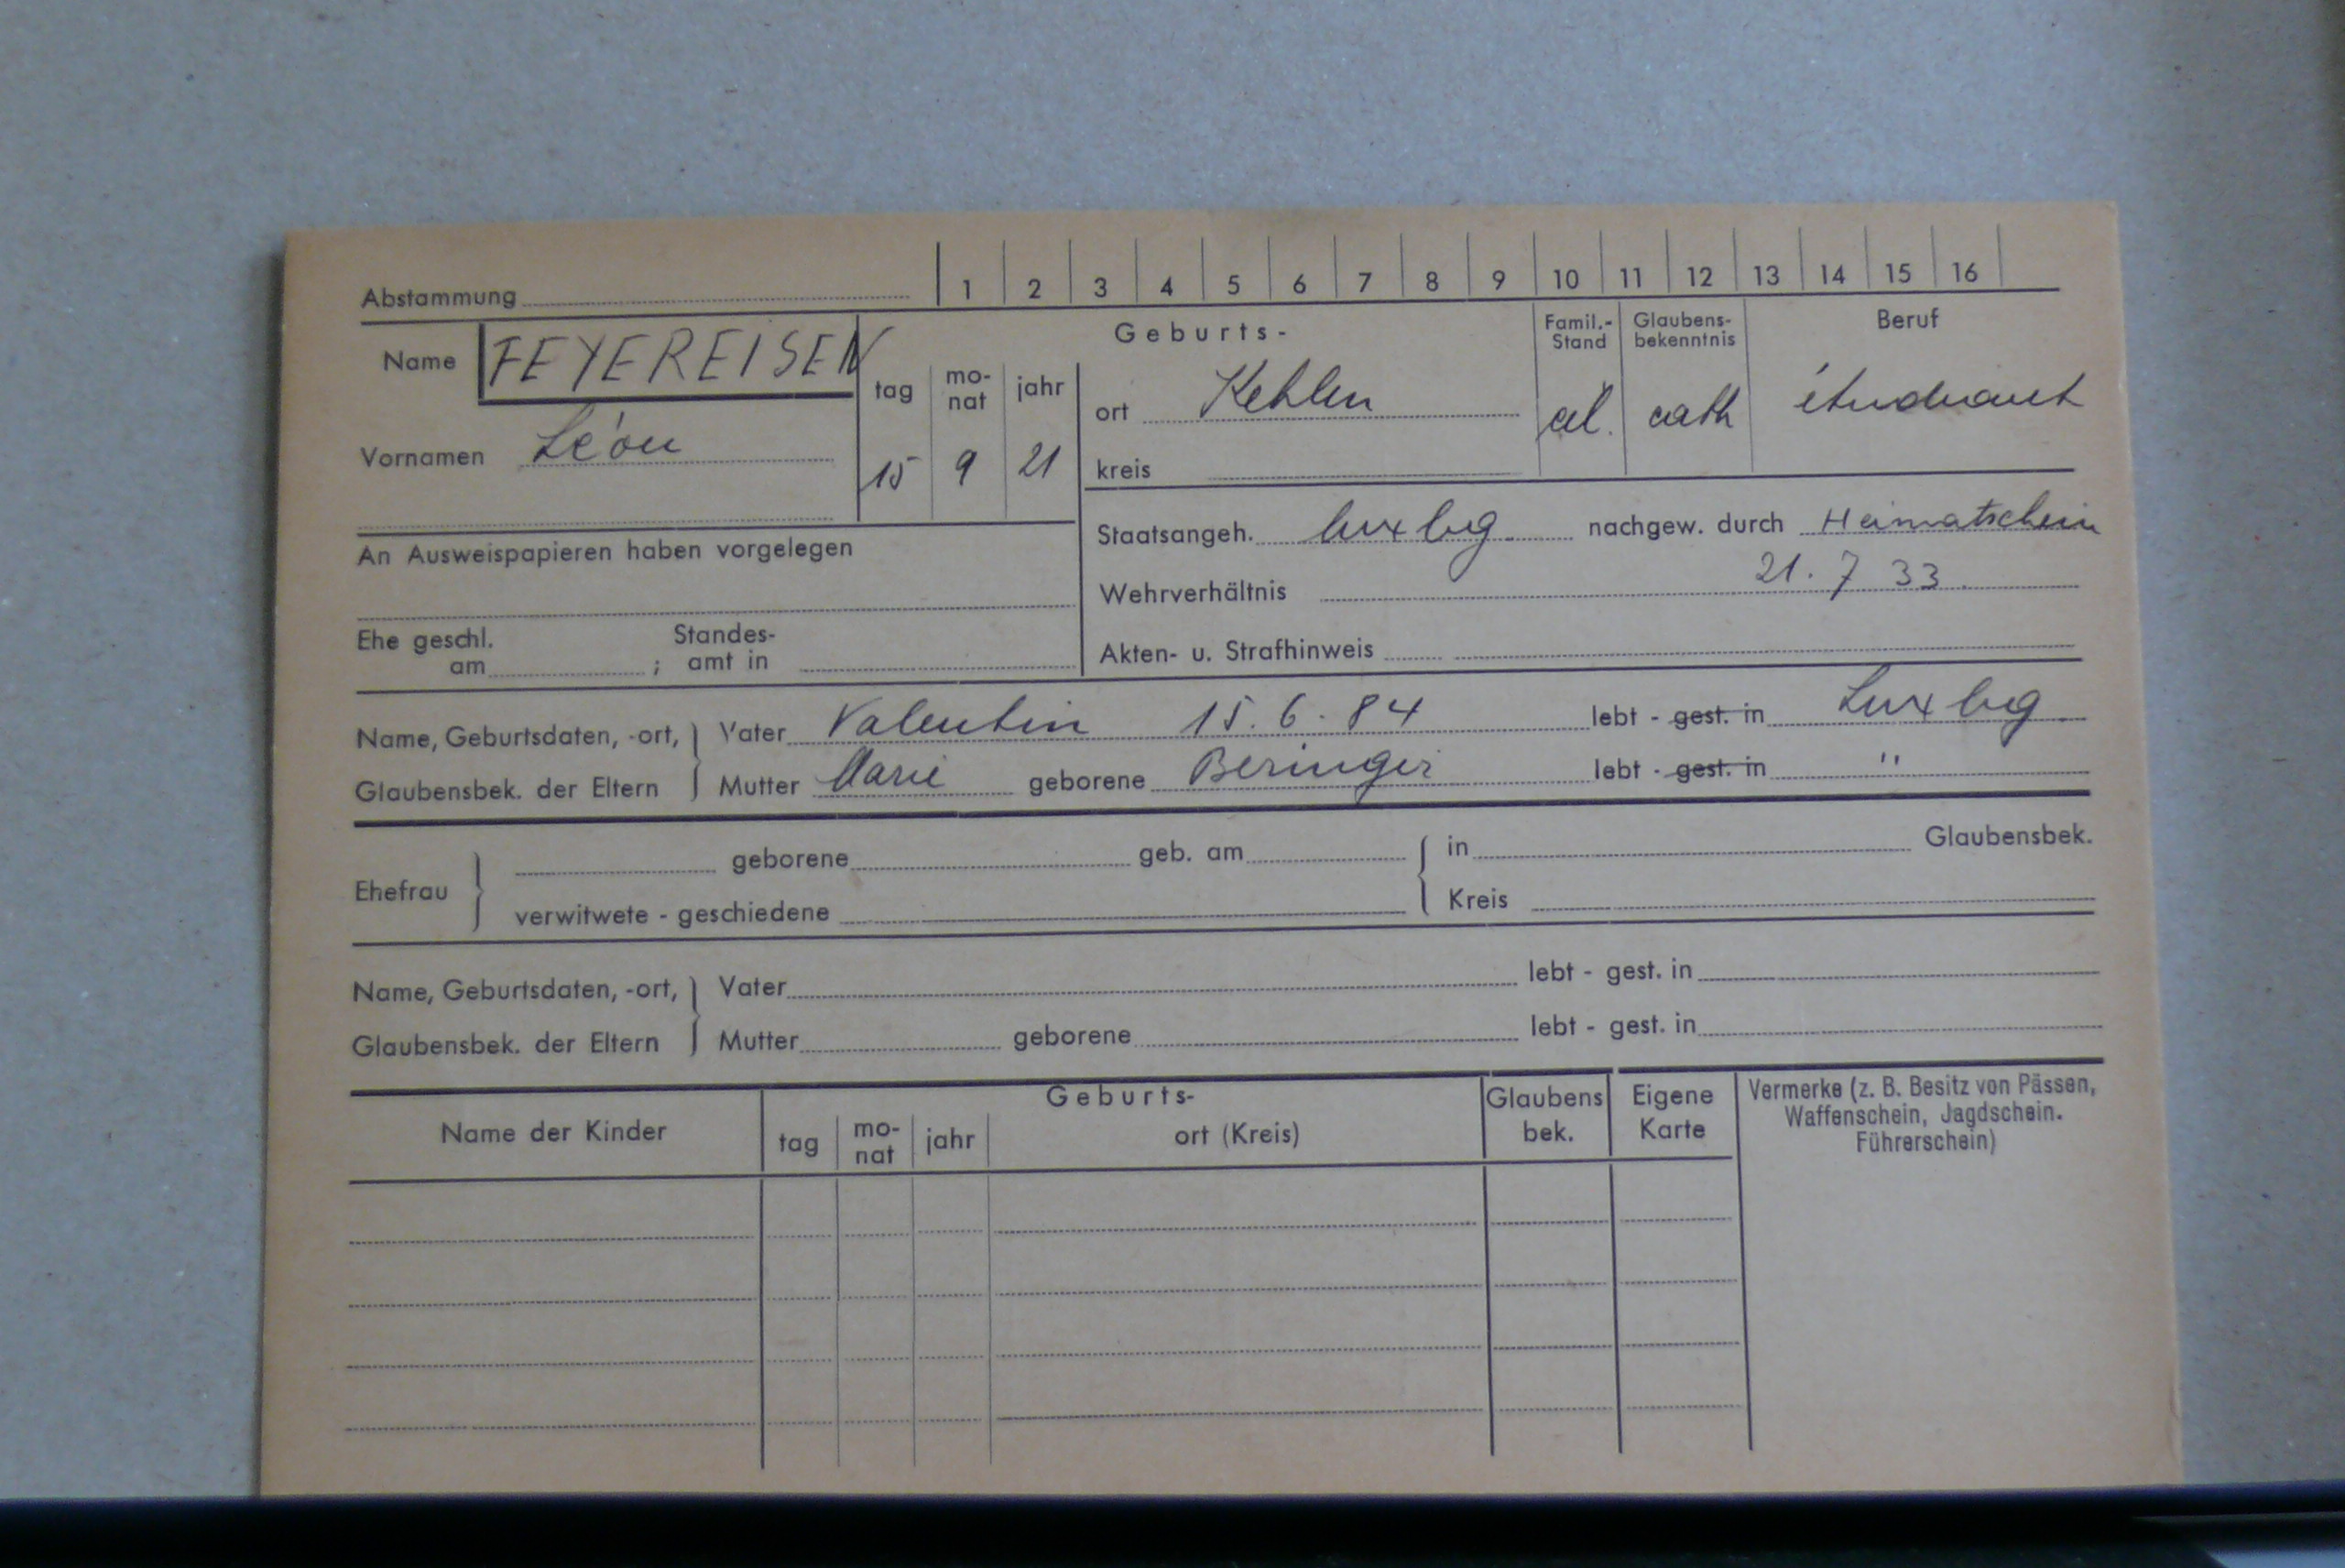 Abstammung 1 2 3 4 5 6 7 8 9 10 11 12 13 14 15 16
Name FEYEREISEN
Geburts-
Famil.-Stand
Glaubens-bekenntnis
Beruf
tag mo-nat jahr
ort Kehlen
cel. cath étudiant
Vornamen Léon
15 9 21
kreis
Staatsangeh. luxbg nachgew. durch Heimatschein
An Ausweispapieren haben vorgelegen
Wehrverhältnis 21. 7 33.
Ehe geschl. am ; Standes-amt in
Akten- u. Strafhinweis
Name, Geburtsdaten, -ort, Vater Valentin 15. 6. 84 lebt - gest. in Luxbg
Glaubensbek. der Eltern Mutter Marie geborene Beringer lebt - gest. in "
Ehefrau
geborene geb. am in Glaubensbek.
verwitwete - geschiedene Kreis
Name, Geburtsdaten, -ort, Vater lebt - gest. in
Glaubensbek. der Eltern Mutter geborene lebt - gest. in
Name der Kinder
Geburts-
tag mo-nat jahr ort (Kreis)
Glaubens bek.
Eigene Karte
Vermerke (z. B. Besitz von Pässen,
Waffenschein, Jagdschein.
Führerschein)